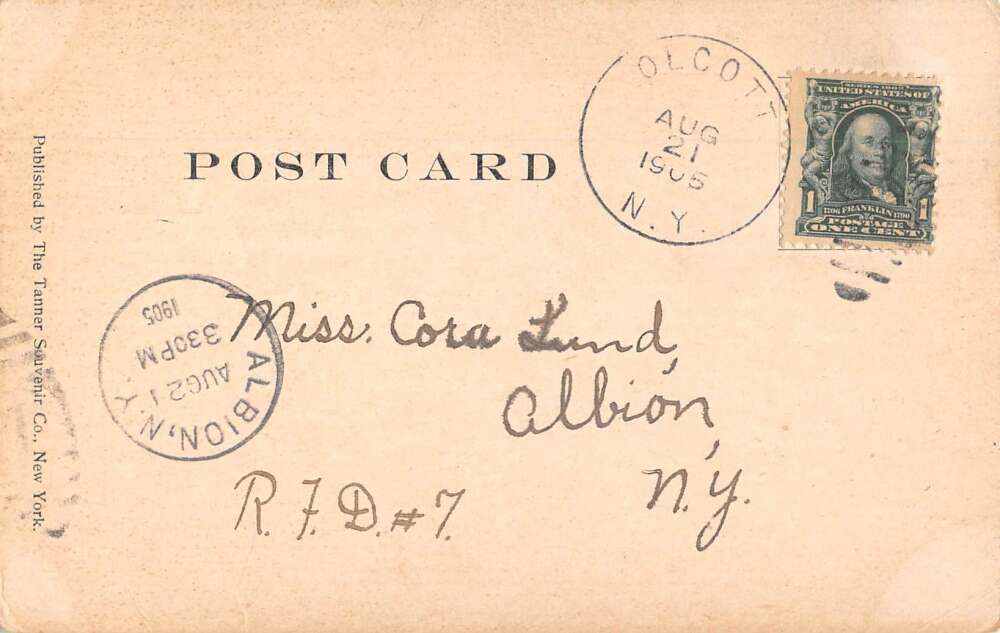 POST CARD
OLCOTT
AUG
21
1905
N.Y.
SERIES 1902
UNITED STATES OF
AMERICA
1 1
1706 FRANKLIN 1790
POSTAGE
ONE CENT
Published by The Tanner Souvenir Co., New York.
ALBION, N.Y.
AUG 21
330PM
1905
Miss. Cora Lund,
Albion,
N.Y.
R.F.D.#7.